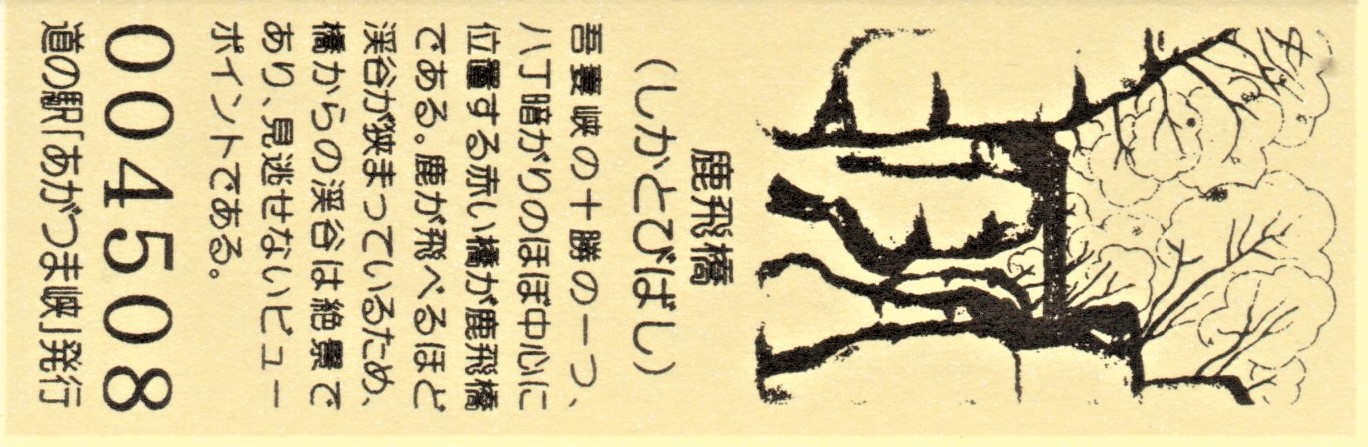 鹿飛橋
(しかとびばし)
吾妻峡の十勝の一つ、
八丁暗がりのほぼ中心に
位置する赤い橋が鹿飛橋
である。鹿が飛べるほど
渓谷が狭まっているため、
橋からの渓谷は絶景で
あり、見逃せないビュー
ポイントである。
004508
道の駅「あがつま峡」発行